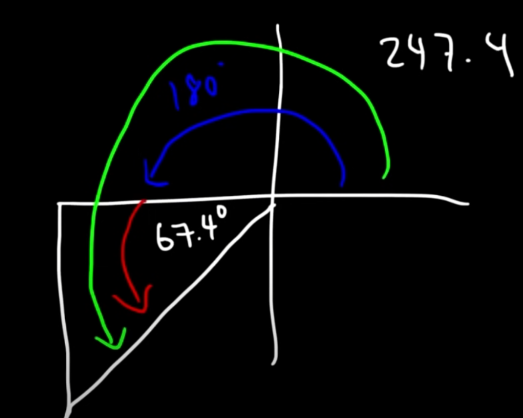 247.4
180°
67.4°